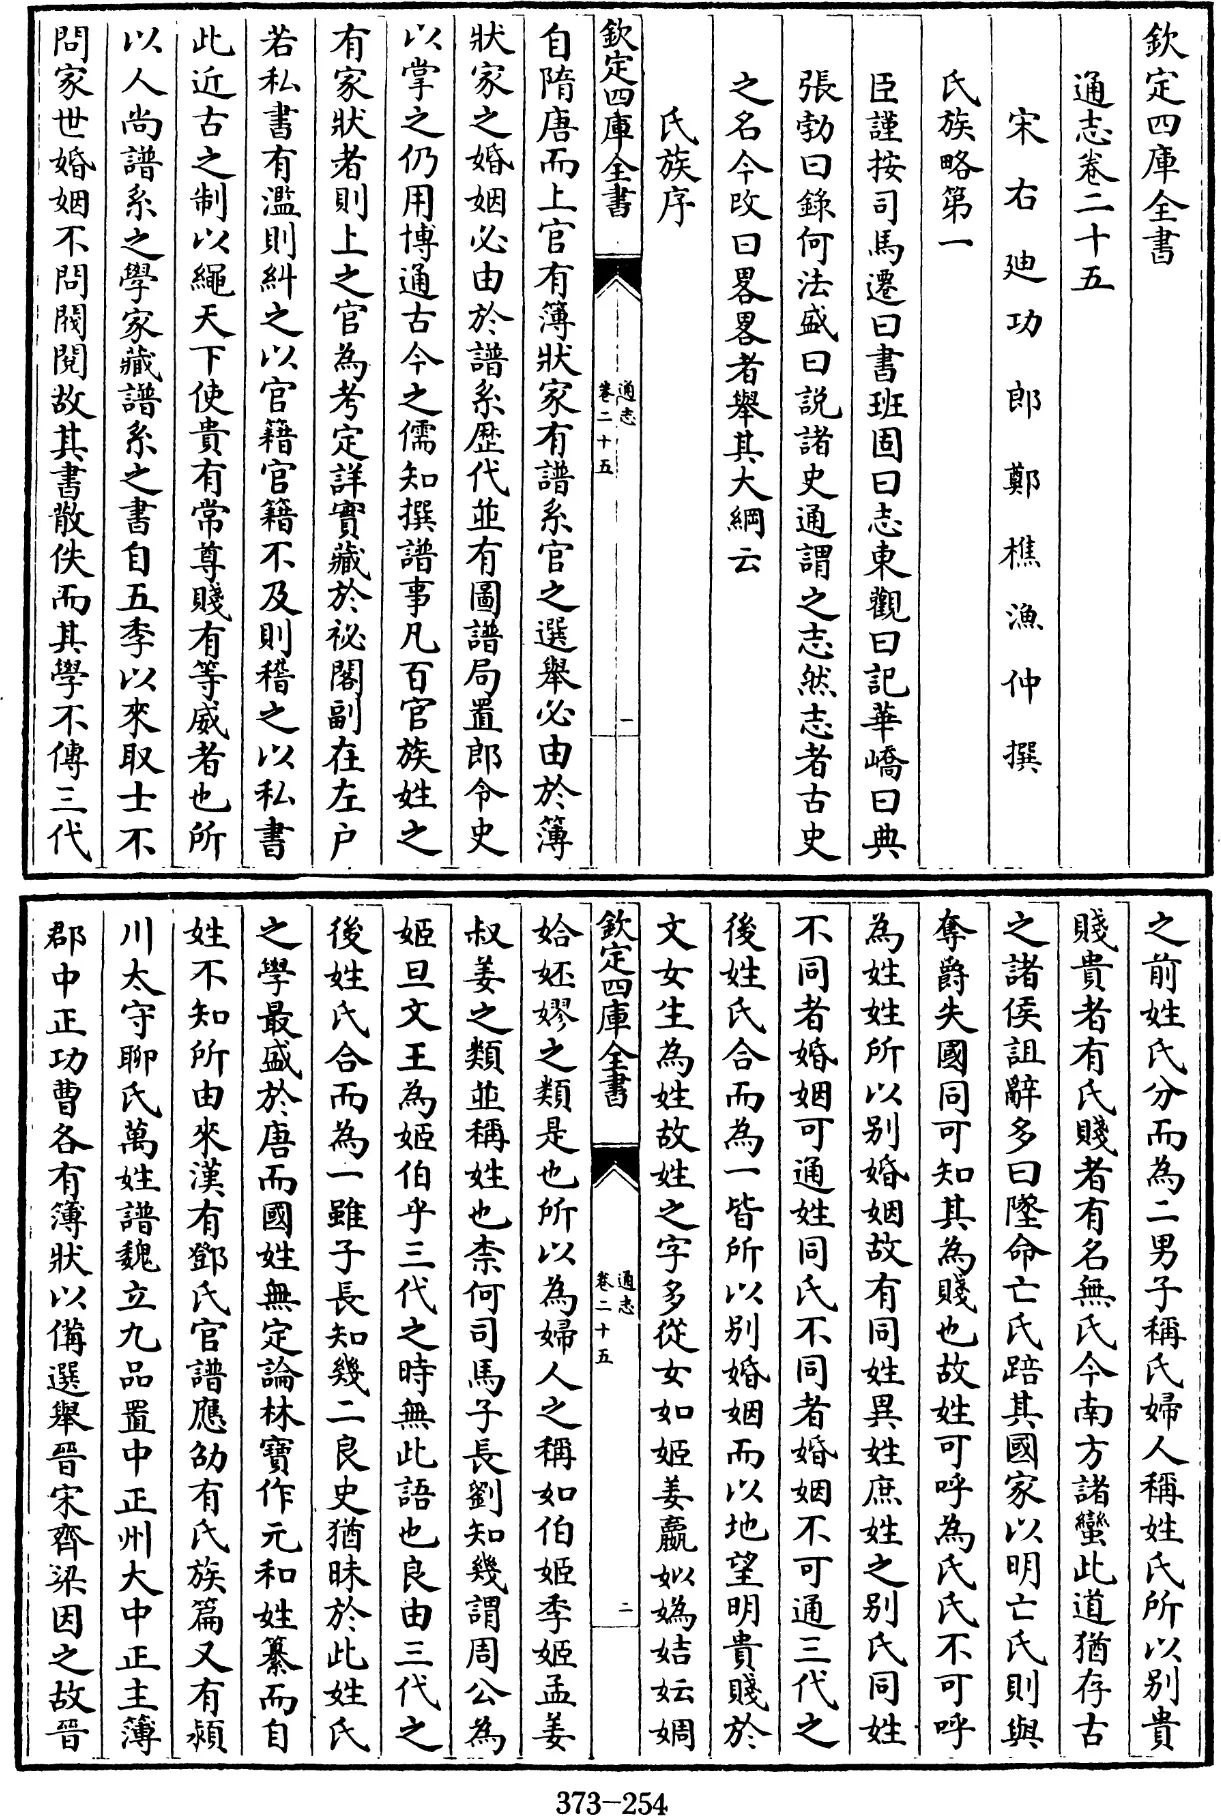 欽定四庫全書
通志卷二十五
宋右迪功郎鄭樵漁仲撰
氏族略第一
臣謹按司馬遷曰書班固曰志東觀曰記華嶠曰典
張勃曰錄何法盛曰説諸史通謂之志然志者古史
之名今改曰畧畧者舉其大綱云
氏族序
欽定四庫全書
通志
卷二十五
一
自隋唐而上官有簿狀家有譜系官之選舉必由於簿
狀家之婚姻必由於譜系歷代並有圖譜局置郎令史
以掌之仍用博通古今之儒知撰譜事凡百官族姓之
有家狀者則上之官為考定詳實藏於祕閣副在左户
若私書有濫則糾之以官籍官籍不及則稽之以私書
此近古之制以繩天下使貴有常尊賤有等威者也所
以人尚譜系之學家藏譜系之書自五季以來取士不
問家世婚姻不問閥閱故其書散佚而其學不傳三代
之前姓氏分而為二男子稱氏婦人稱姓氏所以别貴
賤貴者有氏賤者有名無氏今南方諸蠻此道猶存古
之諸侯詛辭多曰墜命亡氏踣其國家以明亡氏則與
奪爵失國同可知其為賤也故姓可呼為氏氏不可呼
為姓姓所以别婚姻故有同姓異姓庶姓之别氏同姓
不同者婚姻可通姓同氏不同者婚姻不可通三代之
後姓氏合而為一皆所以别婚姻而以地望明貴賤於
文女生為姓故姓之字多從女如姬姜嬴姒嬀姞妘婤
欽定四庫全書
通志
卷二十五
二
姶妚嫪之類是也所以為婦人之稱如伯姬季姬孟姜
叔姜之類並稱姓也柰何司馬子長劉知幾謂周公為
姬旦文王為姬伯乎三代之時無此語也良由三代之
後姓氏合而為一雖子長知幾二良史猶昧於此姓氏
之學最盛於唐而國姓無定論林寶作元和姓纂而自
姓不知所由來漢有鄧氏官譜應劭有氏族篇又有潁
川太守聊氏萬姓譜魏立九品置中正州大中正主簿
郡中正功曹各有簿狀以備選舉晉宋齊梁因之故晉
373-254